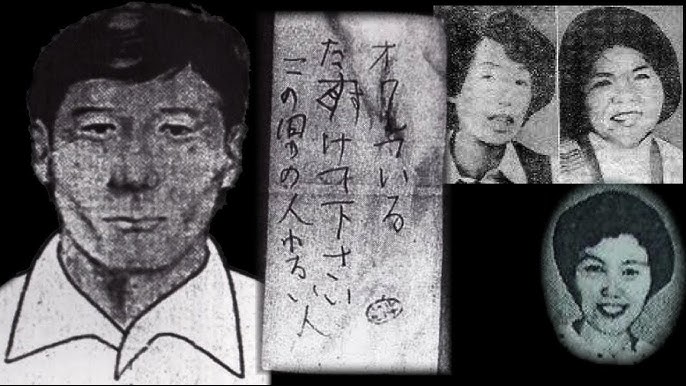 オワ いる
た けて下さい
この男の人わるい人